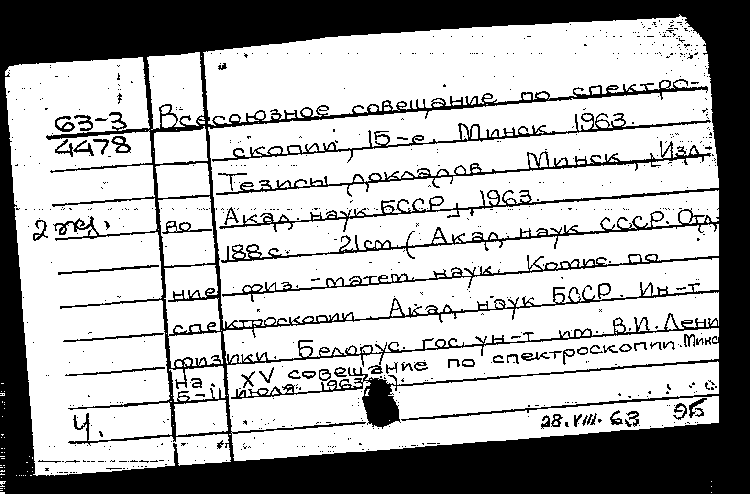 63-3 Всесоюзное совещание по спектро-
4478 скопии, 15-е. Минск. 1963.
Тезисы докладов. Минск, [Изд.-
2 экз. во Акад. наук БССР], 1963.
188 с. 21см (Акад. наук СССР. Отд-
ние физ.-матем. наук. Комис. по
спектроскопии. Акад. наук БССР. Ин-т
физики. Белорус. гос. ун-т им. В.И. Лени
На: XV совещание по спектроскопии. Минс
5-11 июля 1963).
Ч.
28.VIII.63 ЭБ